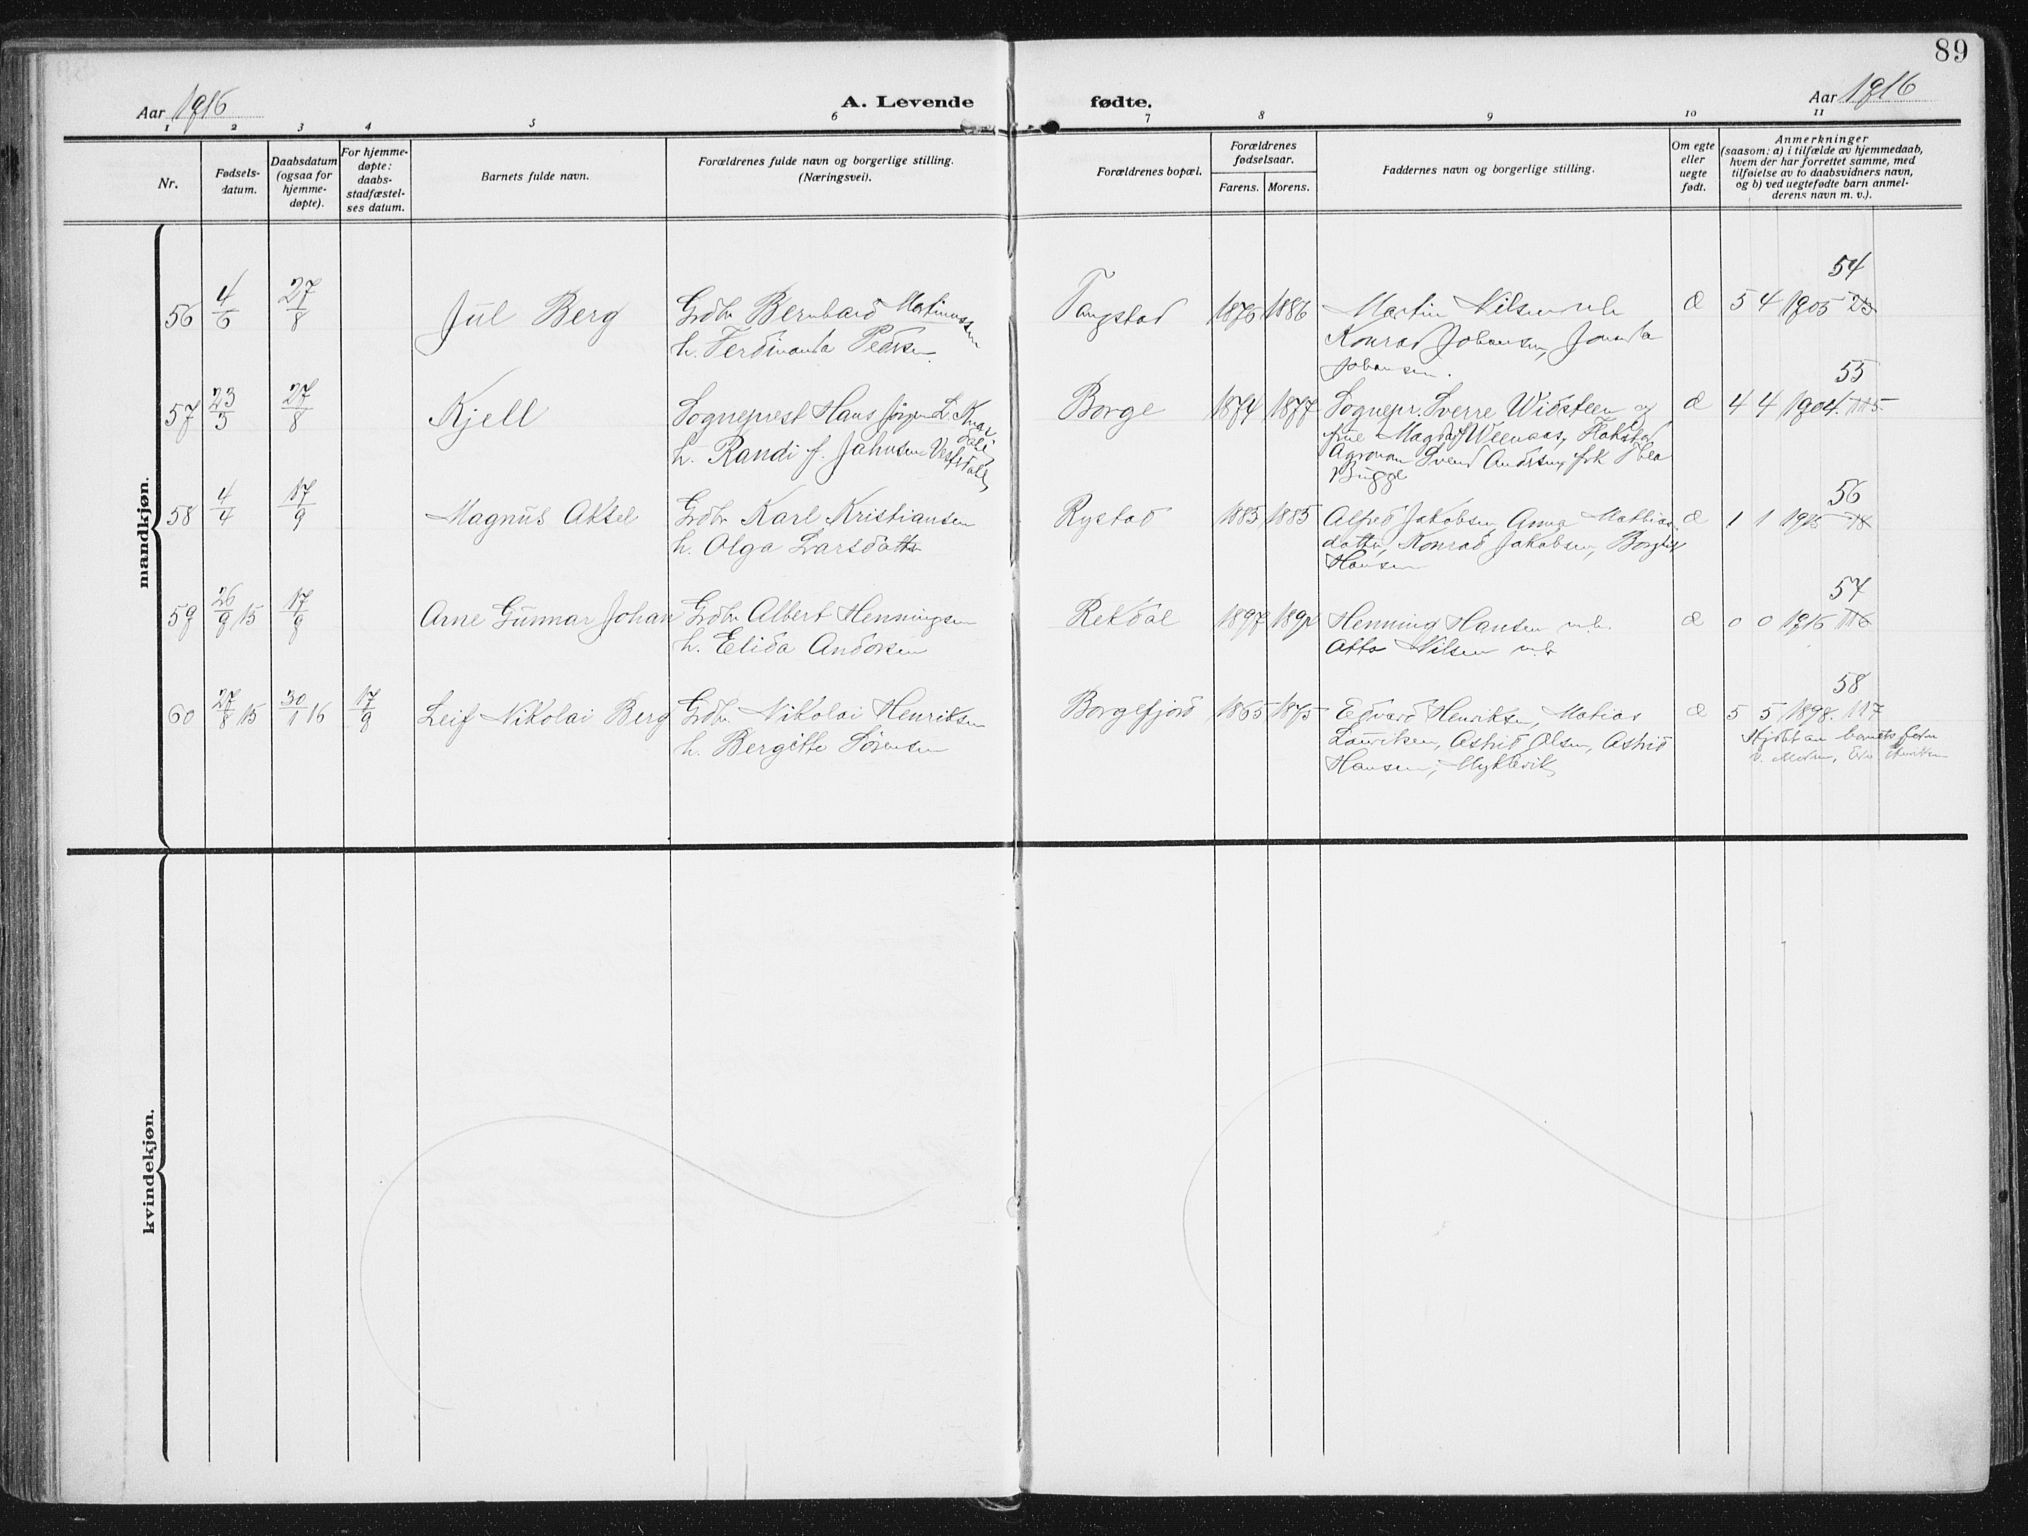 89
Aar 1916
A. Levende fødte.
Aar 1916
1 2 3 4 5 6 7 8 9 10 11
Nr.
Fødsels-
datum.
Daabsdatum
(ogsaa for
hjemme-
døpte).
For hjemme-
døpte:
daabs-
stadfæstel-
ses datum.
Barnets fulde navn.
Forældrenes fulde navn og borgerlige stilling.
(Næringsvei).
Forældrenes bopæl.
Forældrenes
fødselsaar.
Farens. Morens.
Faddernes navn og borgerlige stilling.
Om egte
eller
uegte
født.
Anmerkninger
(saasom: a) i tilfælde av hjemmedaab,
hvem der har forrettet samme, med
tilføielse av to daabsvidners navn,
og b) ved uegtefødte barn anmel-
derens navn m. v.).
mandkjøn.
54
56 4/6 27/8 Jul Berg Grdbr Bernhard Martinussen Tangstad 1876 1886 Martin Nilsen æ 5 4 1905
h. Ferdinanda Pedersen Konrad Johansen, Jonetta
Johansen.
55
57 23/3 27/8 Kjell Sogneprest Hans Jørgen L. Borge 1874 1877 Sognepr. Sverre Widsteen og æ 4 4 1904
h. Randi f. Jahnsen frue Magda f Weenaas, Flakstad
Agronom Svend Andersen, frk Thea
Bugge
56
58 4/4 17/9 Magnus Aksel Grdbr Karl Kristiansen Rystad 1885 1885 Alfred Jakobsen, Anna Mathias- æ 1 1 1915
h. Olga Larsdatter datter, Konrad Jakobsen, Borghild
Hansen
57
59 26/9 15 17/9 Arne Gunnar Johan Grdbr Albert Henningsen Rekdal 1897 1892 Henning Hansen m.h. æ 0 0 1916 116
h. Elida Andersen Otto Nilsen m.h
58
60 27/8 15 30/1 16 17/9 Leif Nikolai Berg Grdbr. Nikolai Henriksen Borgefjord 1865 1875 Edvard Henriksen, Matias æ 5 5 1898. 117
h. Bergitte Sørensen Lauriksen, Astrid Olsen, Astrid Hjdbt av barnets farm
Hansen, Myklevik
kvindekjøn.